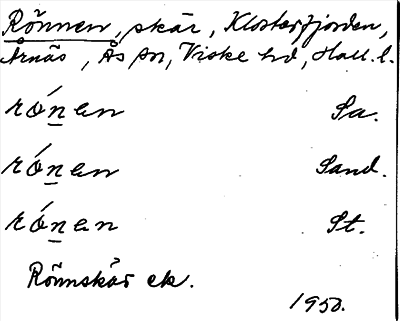 Rönnen, skär, Klosterfjorden,
Årnäs, Ås sn, Viske hd, Hall. l.
rónen Sa.
rónen Sand.
rónen St.
Rönnskär ek.
1950.